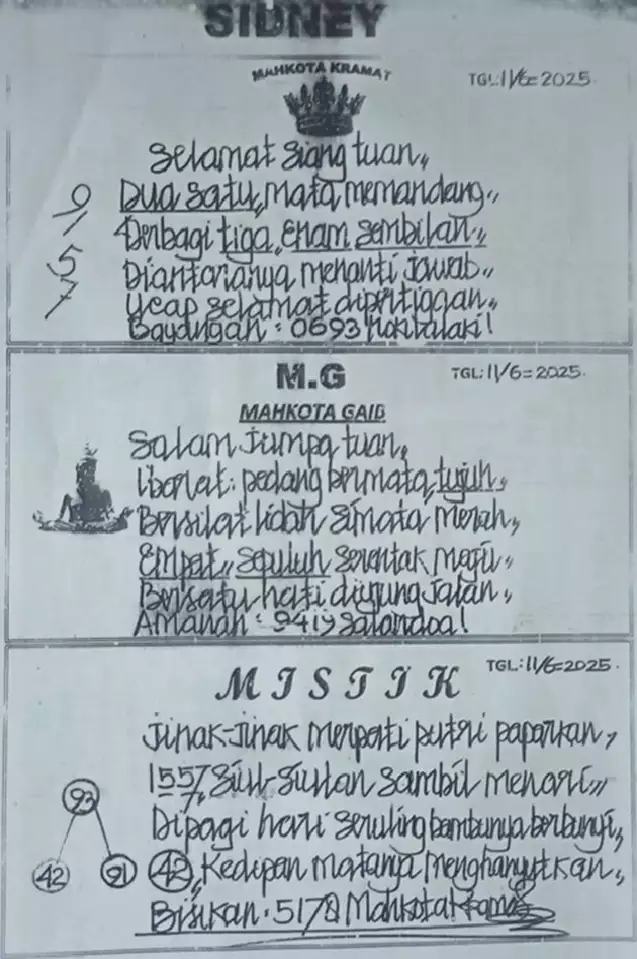 SIDNEY
MAHKOTA KRAMAT
TGL: 11/6=2025.
Selamat siang tuan,,
Dua satu,, mata memandang,,
Terbagi tiga, enam sembilan,,
Diantaranya menanti jawab,,
Ucap selamat dipertiggan,,
Bayungan: 0693 hokibalaki!
9/
5
7
M.G
TGL: 11/6=2025.
MAHKOTA GAIB
Salam jumpa tuan,
Ibarat: pedang bermata,, tujuh,,
Bersilat lidah simata merah,,
Empat,, sepuluh serentak maju,,
Bersatu hati diujung jalan,,
Amanah: 9419 Salamdoa!
MISTIK
TGL: 11/6=2025.
Jinak-jinak merpati putri paparkan,
1557, siul-siulan sambil menari,,
7,
Dipagi hari seruling bambunya berbunyi,
93
42
91
42,, Kedipan matanya menghanyutkan,,
Bisikan: 5178 Mahkota Kramat